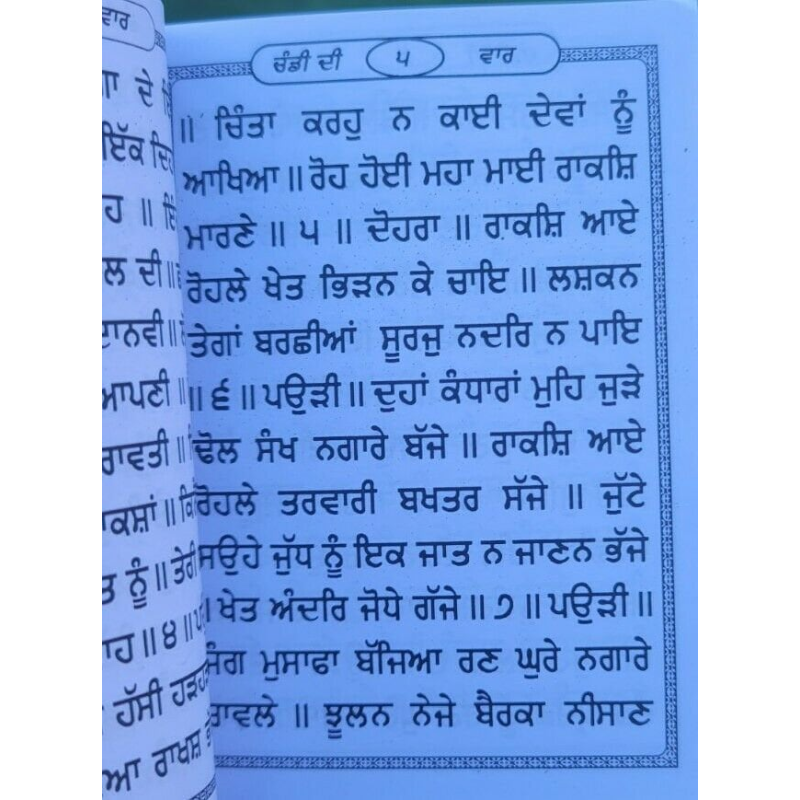 ਵਾਰ
ਦੇ
ਇੱਕ
ਹ ॥
ਲ ਦੀ ॥
ਦਾਨਵੀ ॥
ਆਪਣੀ ॥
ਰਾਵਤੀ ॥
ਕਸ਼ਾਂ ॥
ਤ ਨੂੰ ॥ ਤੇਰੀ
ਾਹ ॥ ੪ ॥
ਹੱਸੀ
ਆ ਰਾਖਸ਼
ਚੰਡੀ ਦੀ ੫ ਵਾਰ
॥ ਚਿੰਤਾ ਕਰਹੁ ਨ ਕਾਈ ਦੇਵਾਂ ਨੂੰ
ਆਖਿਆ ॥ ਰੋਹ ਹੋਈ ਮਹਾ ਮਾਈ ਰਾਕਸ਼ਿ
ਮਾਰਣੇ ॥ ੫ ॥ ਦੋਹਰਾ ॥ ਰਾਕਸ਼ਿ ਆਏ
ਰੋਹਲੇ ਖੇਤ ਭਿੜਨ ਕੇ ਚਾਇ ॥ ਲਸ਼ਕਨ
ਤੇਗਾਂ ਬਰਛੀਆਂ ਸੂਰਜੁ ਨਦਰਿ ਨ ਪਾਇ
॥ ੬ ॥ ਪਉੜੀ ॥ ਦੁਹਾਂ ਕੰਧਾਰਾਂ ਮੁਹਿ ਜੁੜੇ
ਢੋਲ ਸੰਖ ਨਗਾਰੇ ਬੱਜੇ ॥ ਰਾਕਸ਼ਿ ਆਏ
ਰੋਹਲੇ ਤਰਵਾਰੀ ਬਖਤਰ ਸੱਜੇ ॥ ਜੁੱਟੇ
ਸਉਹੇ ਜੁੱਧ ਨੂੰ ਇਕ ਜਾਤ ਨ ਜਾਣਨ ਭੱਜੇ
॥ ਖੇਤ ਅੰਦਰਿ ਜੋਧੇ ਗੱਜੇ ॥ ੭ ॥ ਪਉੜੀ ॥
ਜੰਗ ਮੁਸਾਫਾ ਬੱਜਿਆ ਰਣ ਘੁਰੇ ਨਗਾਰੇ
ਚਾਵਲੇ ॥ ਝੂਲਨ ਨੇਜੇ ਬੈਰਕਾ ਨੀਸਾਣ